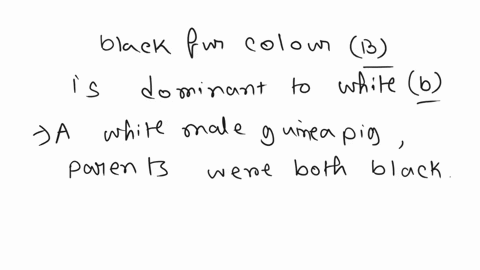 black fur colour (B)
is dominant to white (b)
→ A white male guinea pig,
parents were both black.